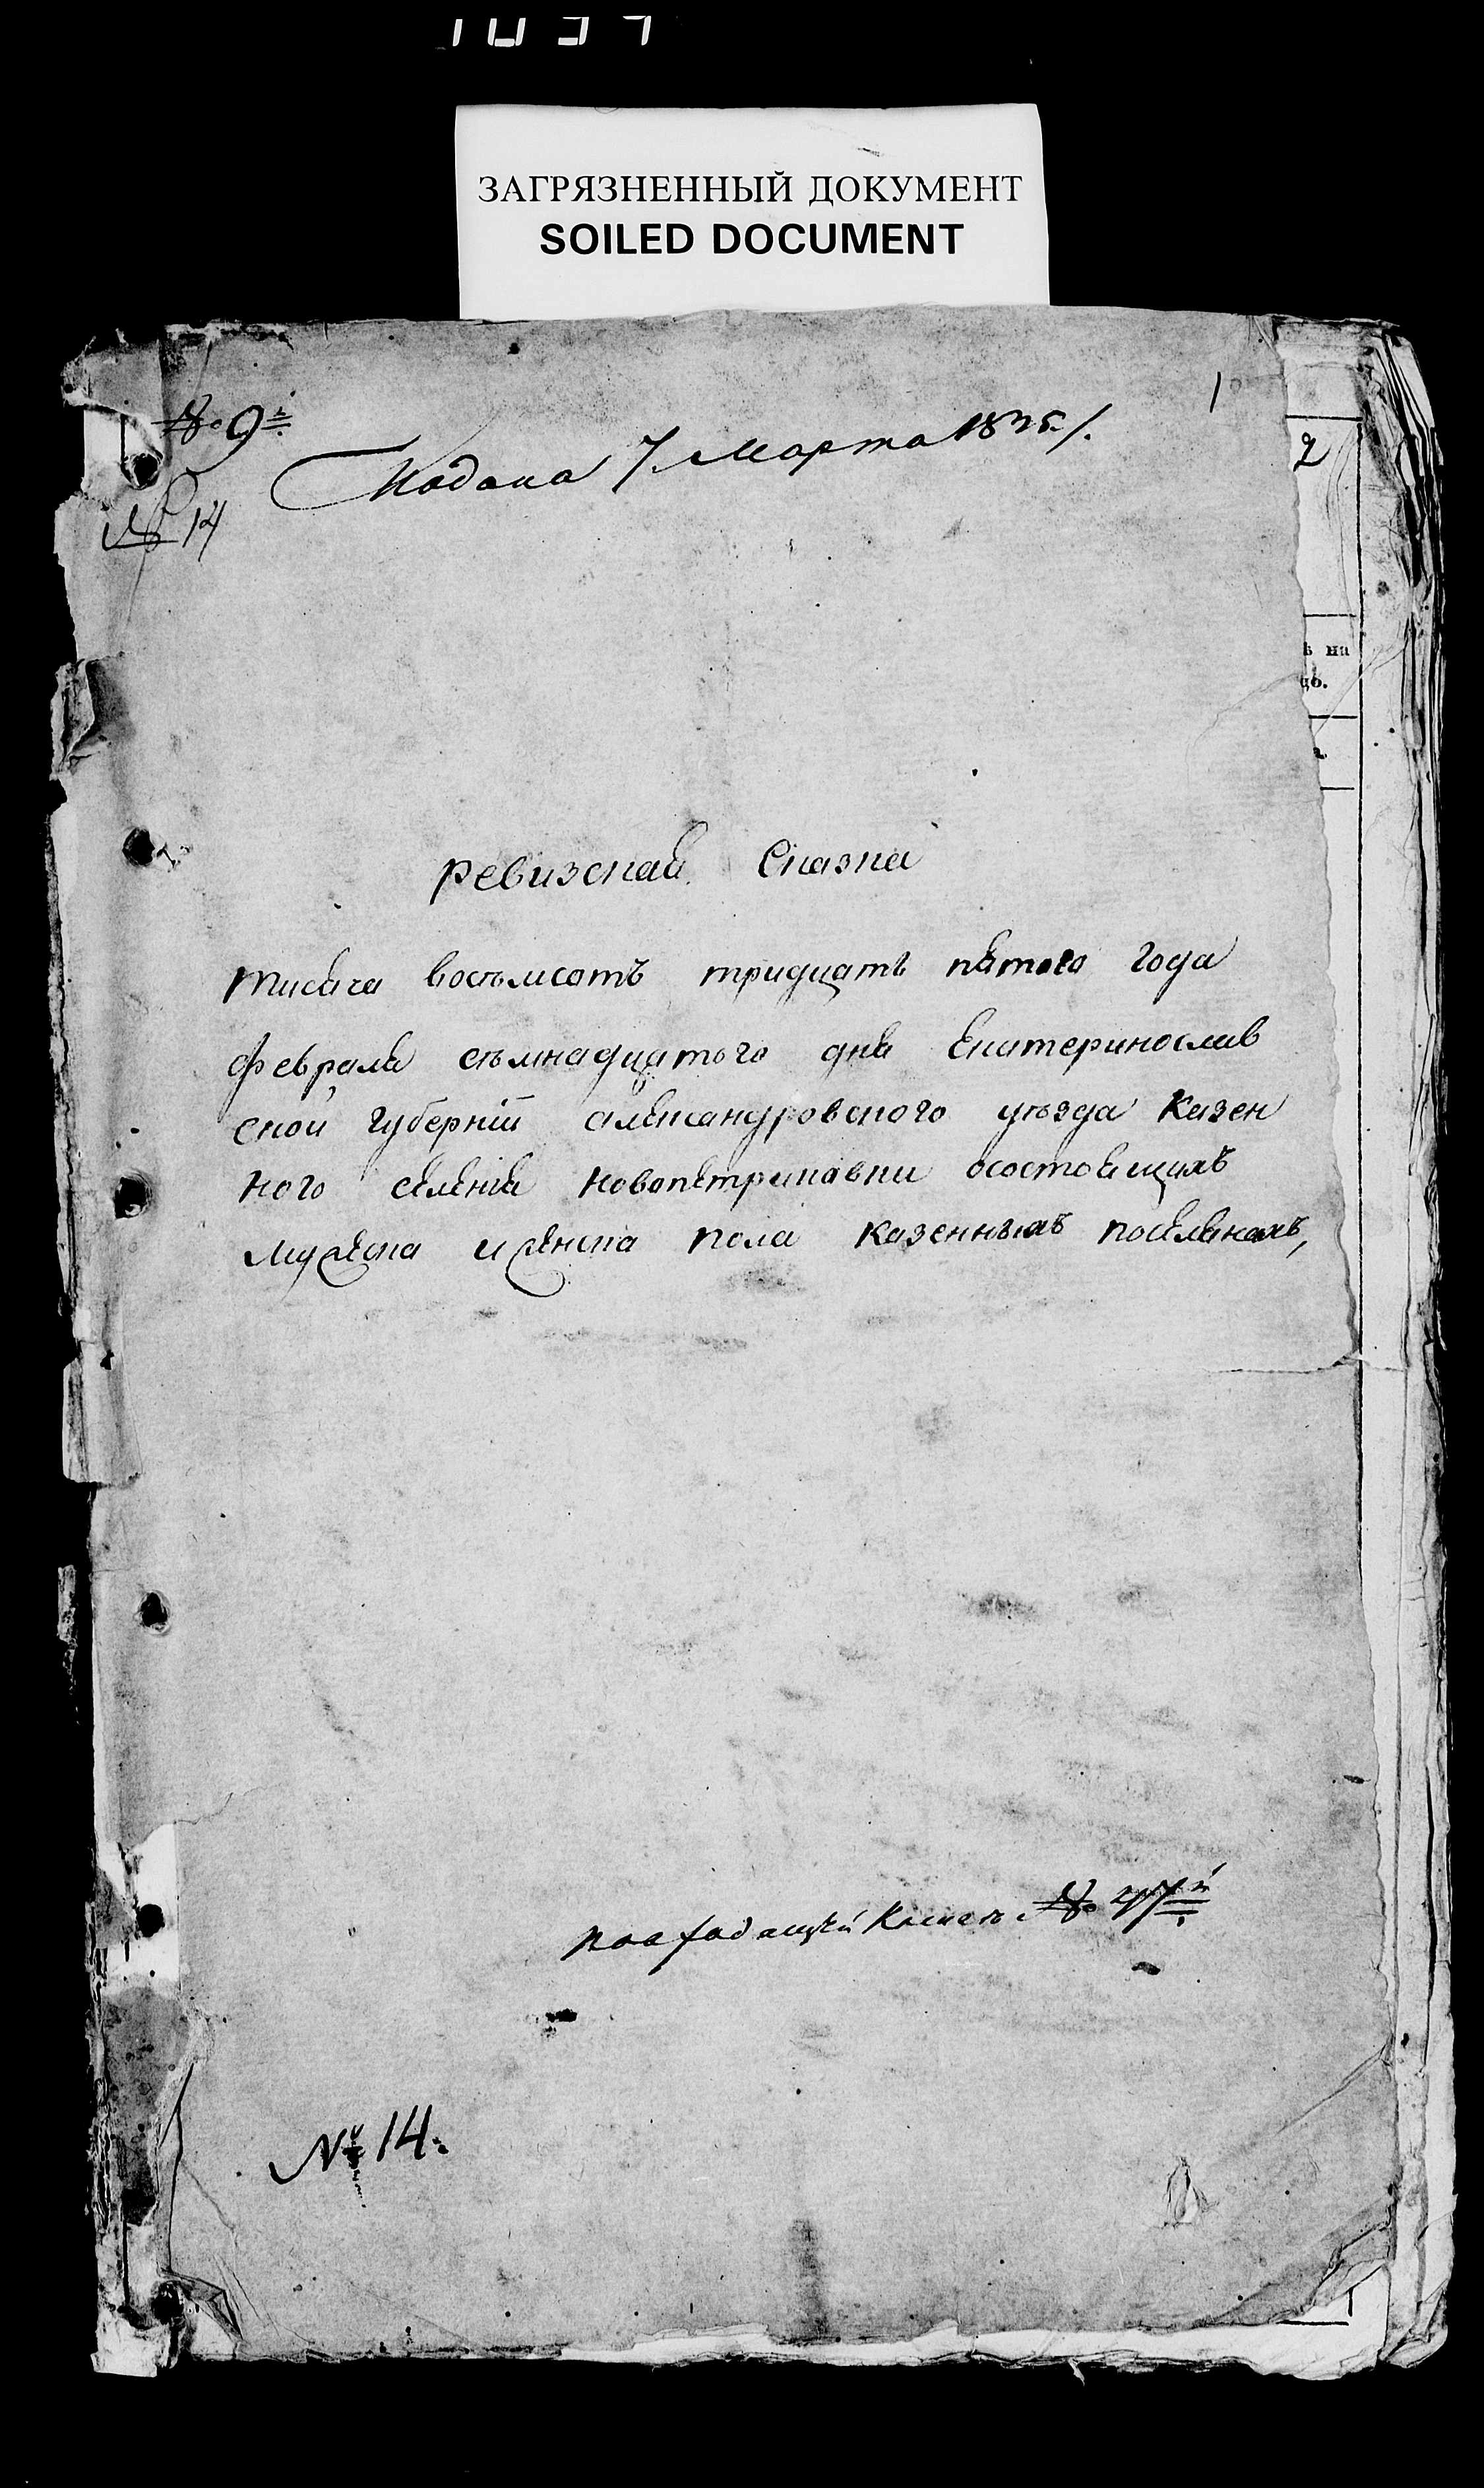 ЗАГРЯЗНЕННЫЙ ДОКУМЕНТ
SOILED DOCUMENT
1
№ 9й
Подана 7. Марта 1835./.
№ 14
2
ъ на
цо.
Ревизская Сказка
тисяча восъмсотъ тридцать пятого года
февраля съмнадцатого дня Екатеринослав
ской губерніи александровского уѣзда Казен
ного селения Новопетриковки осостоящихъ
мужеска иженска пола казенныхъ поселянахъ,
№ 47й
№ 14.